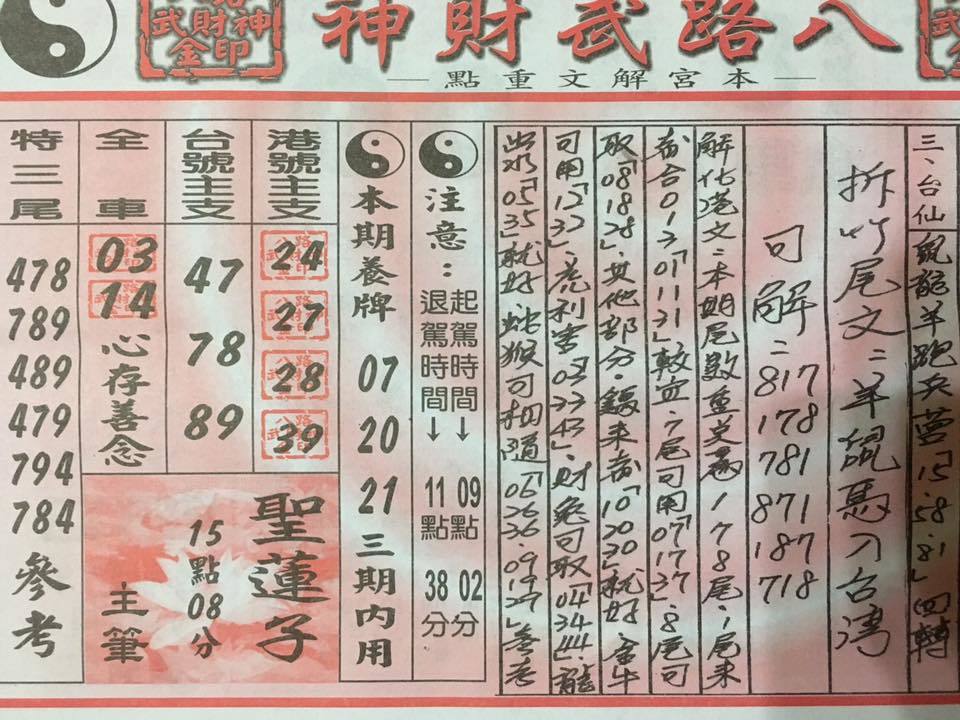 八路武財神
本宮解文重點
八路財神
武財印
金印
三、台仙
鼠龍羊跑兵營「15.58.81」回轉
拆竹尾文:羊鼠馬入台灣
可解:817
178
781
871
187
718
解化港文:本期尾數重點 1 7 8尾、1尾來
合013「01 11 31」7尾可用「07 17 37」.8尾可
取「08 18 28」.其他部分.錢來「10 20 30」就好.金牛
可用「12 32」.虎利害「03 33 43」.財兔可取「04 34 44」.龍
出水「05 35」就好.蛇猴可相隨「06 26 36.09 19 29」參考
注意:
起駕時間→09點02分
退駕時間→11點38分
本期養牌 07 20 21 三期內用
港號主支
24
27
28
39
台號主支
47
78
89
全車
03
14
心存善念
聖蓮子
15點08分
主筆
特三尾
478
789
489
479
794
784
參考